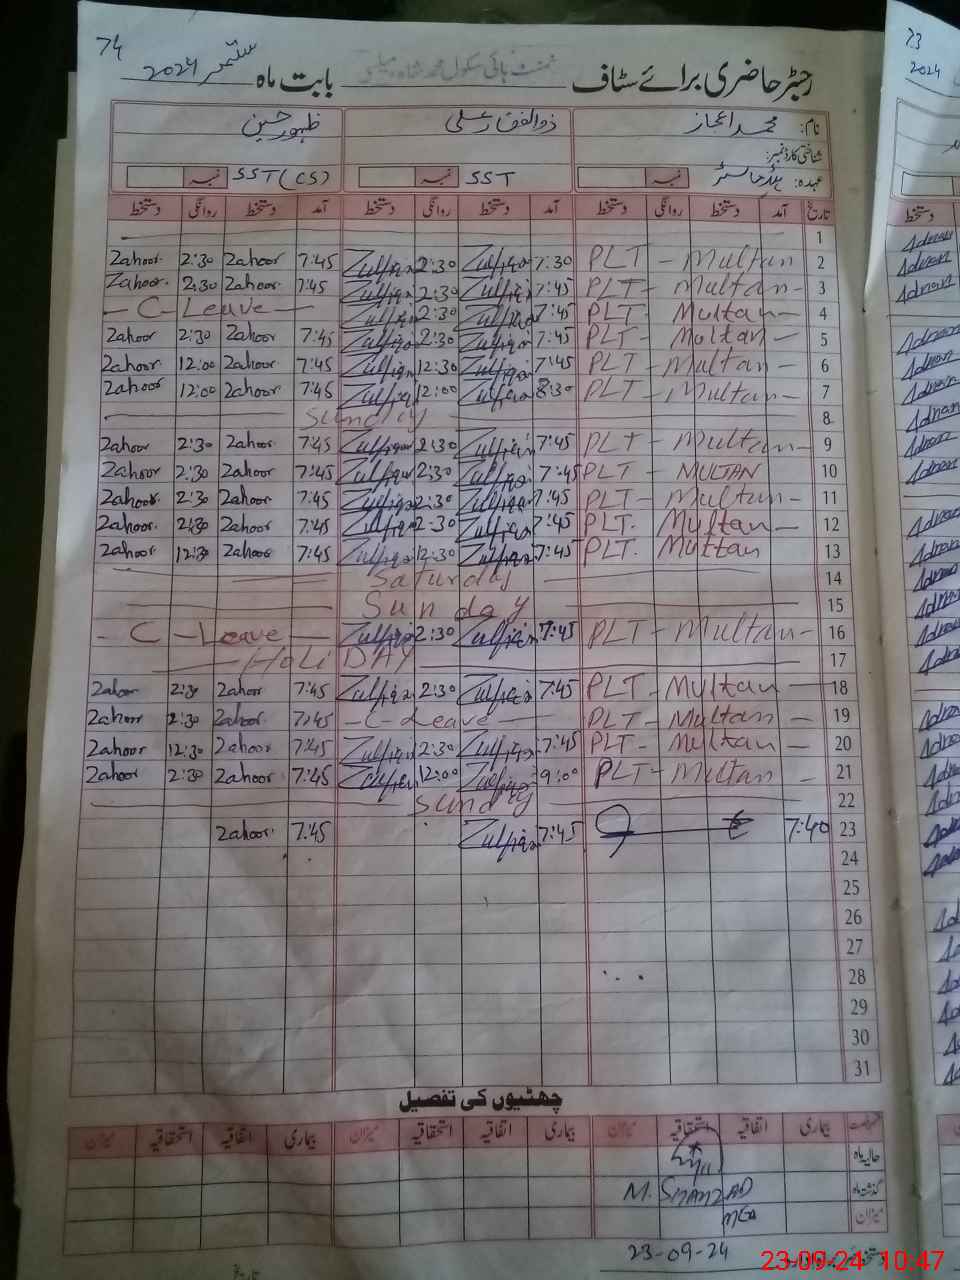 74
رجسٹر حاضری برائے سٹاف بابت ماہ ستمبر 2024
نام: محمد اعجاز ذوالفقار علی ظہور حسین
شناختی کارڈ نمبر:
عہدہ: نمبر SST نمبر SST (CS) نمبر
تاریخ آمد دستخط روانگی دستخط آمد دستخط روانگی دستخط آمد دستخط روانگی دستخط
1
Zahoor 2:30 Zahoor 7:45 Zulfiqar 2:30 Zulfiqar 7:30 PLT - Multan 2
Zahoor 2:30 Zahoor 7:45 Zulfiqar 2:30 Zulfiqar 7:45 PLT - Multan - 3
- C - Leave - Zulfiqar 2:30 Zulfiqar 7:45 PLT Multan - 4
Zahoor 2:30 Zahoor 7:45 Zulfiqar 2:30 Zulfiqar 7:45 PLT - Multan - 5
Zahoor 12:00 Zahoor 7:45 Zulfiqar 12:30 Zulfiqar 7:45 PLT - Multan - 6
Zahoor 12:00 Zahoor 7:45 Zulfiqar 12:00 Zulfiqar 8:30 PLT - Multan - 7
Sunday 8
Zahoor 2:30 Zahoor 7:45 Zulfiqar 2:30 Zulfiqar 7:45 PLT - Multan - 9
Zahoor 2:30 Zahoor 7:45 Zulfiqar 2:30 Zulfiqar 7:45 PLT - MULTAN 10
Zahoor 2:30 Zahoor 7:45 Zulfiqar 2:30 Zulfiqar 7:45 PLT - Multan - 11
Zahoor 2:30 Zahoor 7:45 Zulfiqar 2:30 Zulfiqar 7:45 PLT. Multan - 12
Zahoor 12:30 Zahoor 7:45 Zulfiqar 12:30 Zulfiqar 7:45 PLT. Multan 13
Saturday 14
Sunday 15
- C - Leave - Zulfiqar 2:30 Zulfiqar 7:45 PLT - Multan - 16
HOLiDAY 17
Zahoor 2:30 Zahoor 7:45 Zulfiqar 2:30 Zulfiqar 7:45 PLT - Multan - 18
Zahoor 2:30 Zahoor 7:45 - C - Leave - PLT - Multan - 19
Zahoor 12:30 Zahoor 7:45 Zulfiqar 2:30 Zulfiqar 7:45 PLT - Multan - 20
Zahoor 2:30 Zahoor 7:45 Zulfiqar 12:00 Zulfiqar 9:00 PLT - Multan - 21
Sunday 22
Zahoor 7:45 Zulfiqar 7:45 7:40 23
24
25
26
27
28
29
30
31
چھٹیوں کی تفصیل
بیماری اتفاقیہ استحقاقیہ میزان بیماری اتفاقیہ استحقاقیہ میزان بیماری اتفاقیہ استحقاقیہ میزان
حالیہ ماہ
گذشتہ ماہ M. SHAHZAD
میزان MEA
23-09-24
تاریخ
73
2024
دستخط
Adnan
Adnan
Adnan
Adnan
Adnan
Adnan
Adnan
Adnan
Adnan
23.09.24 10:47